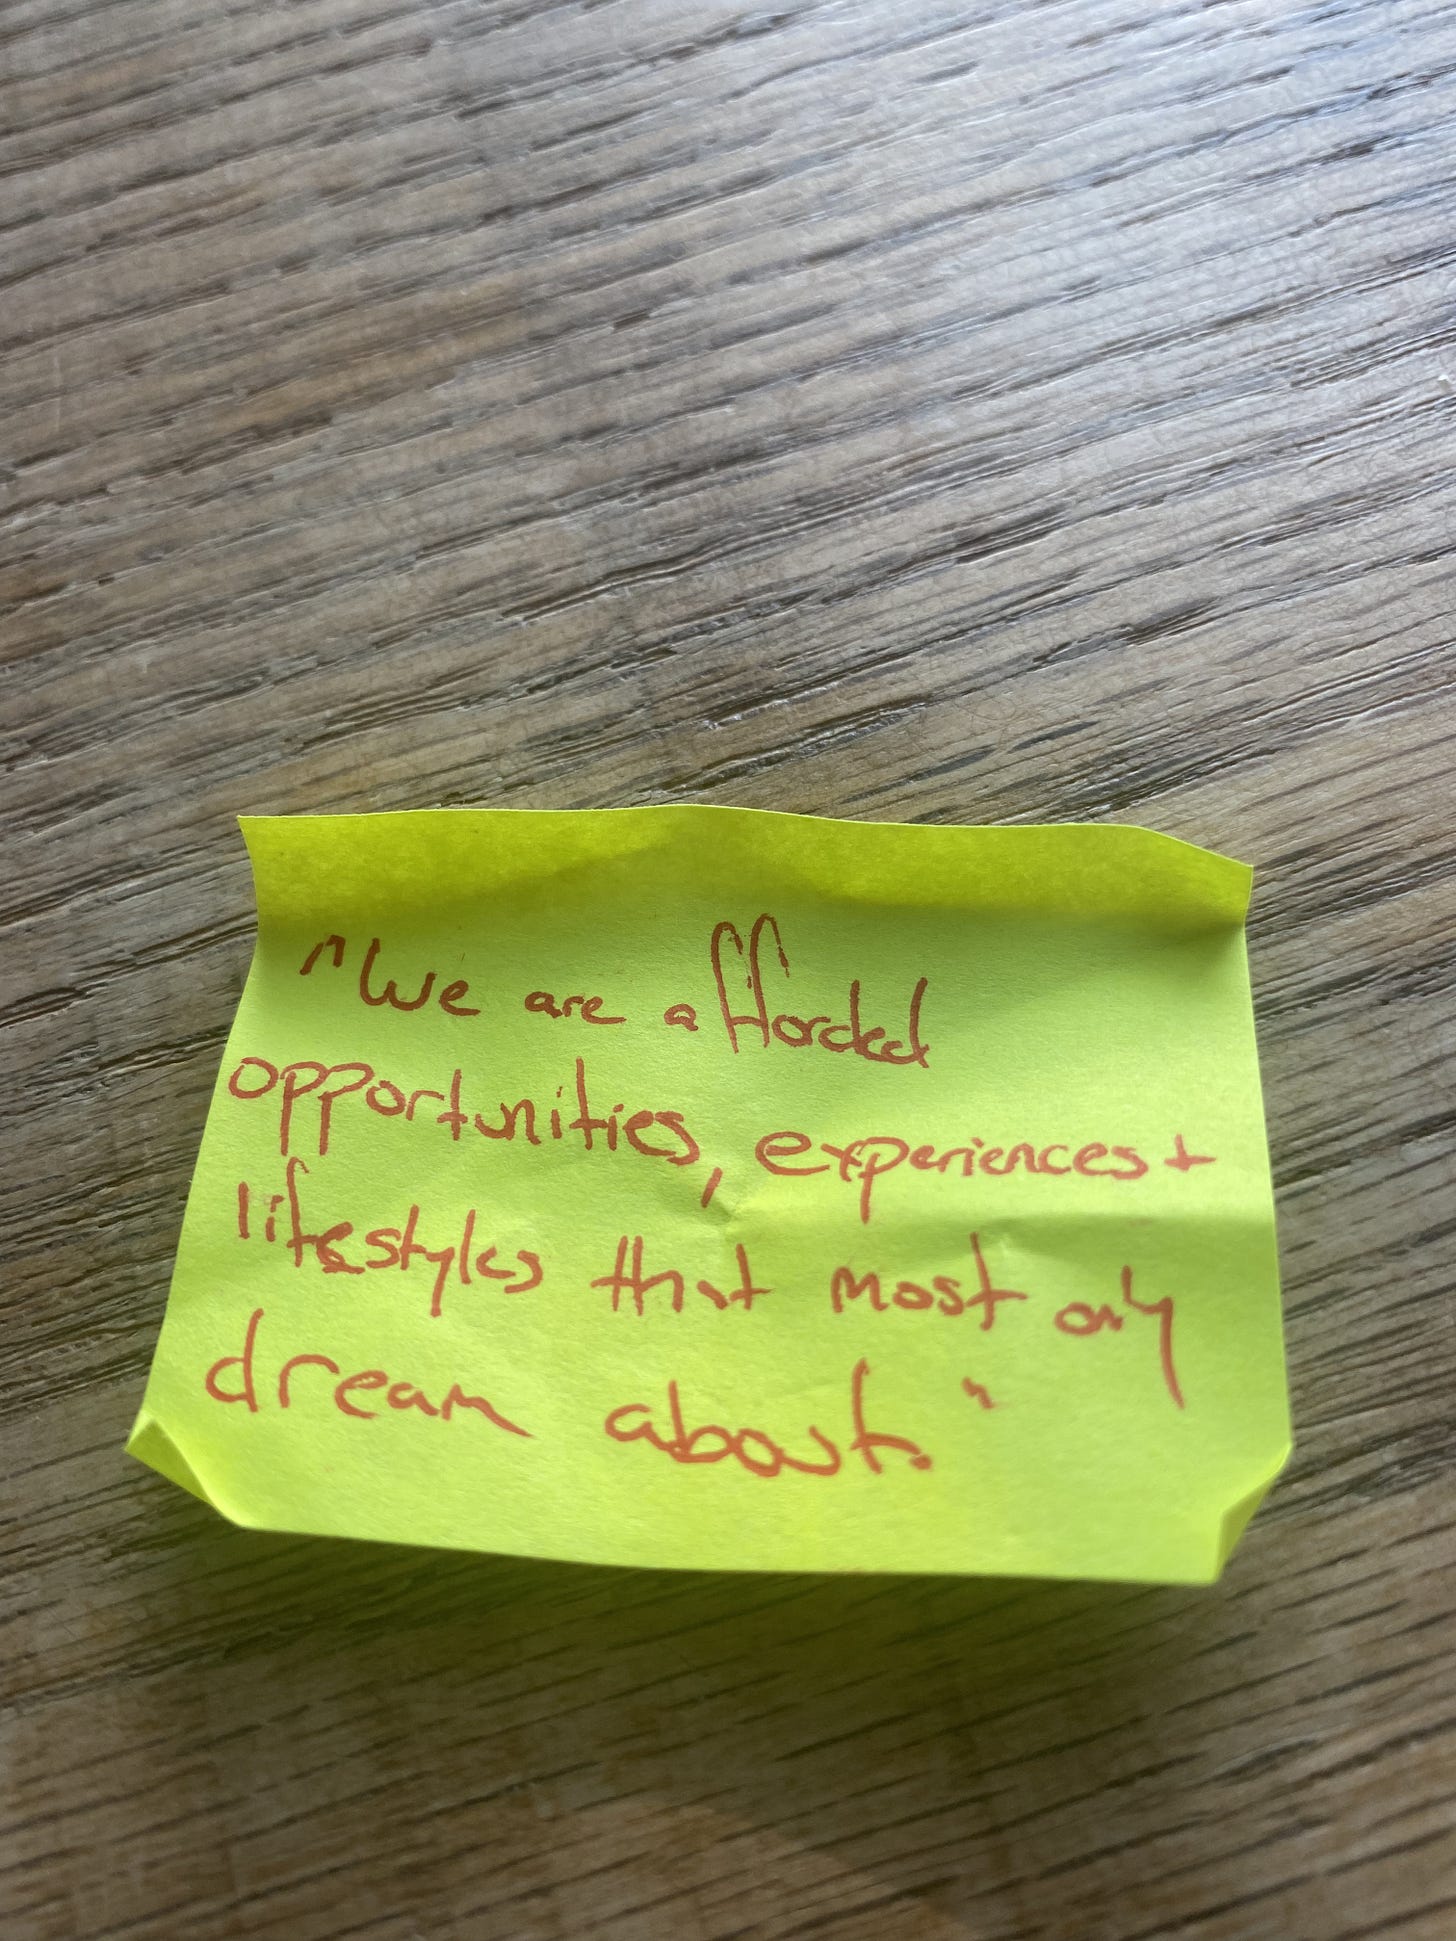 "We are afforded
opportunities, experiences +
lifestyles that most only
dream about."